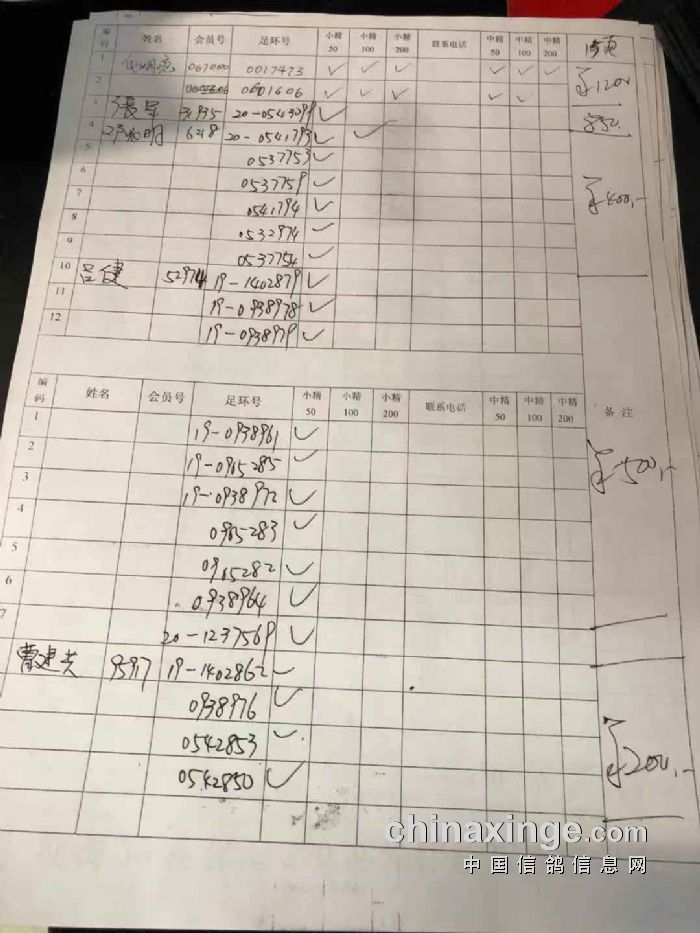 编码 姓名 会员号 足环号 小精50 小精100 小精200 联系电话 中精50 中精100 中精200
1 067000 0017473 ✓ ✓ ✓ ✓ ✓ ✓
2 0601606 ✓ ✓ ✓ ✓ ✓ ¥1200
3 31935 20-0543099 ✓ 850
4 6218 20-0541793 ✓ ✓
5 0537753 ✓
6 0537759 ✓ ¥400,-
7 0541794 ✓
8 0532974 ✓
9 0537754 ✓
10 吕健 52974 19-1402879 ✓
11 19-0938978 ✓
12 19-0938979 ✓
编码 姓名 会员号 足环号 小精50 小精100 小精200 联系电话 中精50 中精100 中精200 备注
1 19-0938961 ✓
2 19-0965285 ✓ ¥500,-
3 19-0938972 ✓
4 0965283 ✓
5 0965282 ✓
6 0938964 ✓
7 20-1237569 ✓
曹建 95917 19-1402862 ✓
0938976 ✓
0542853 ✓ ¥200,-
0542850 ✓
chinaxinge.com
中国信鸽信息网